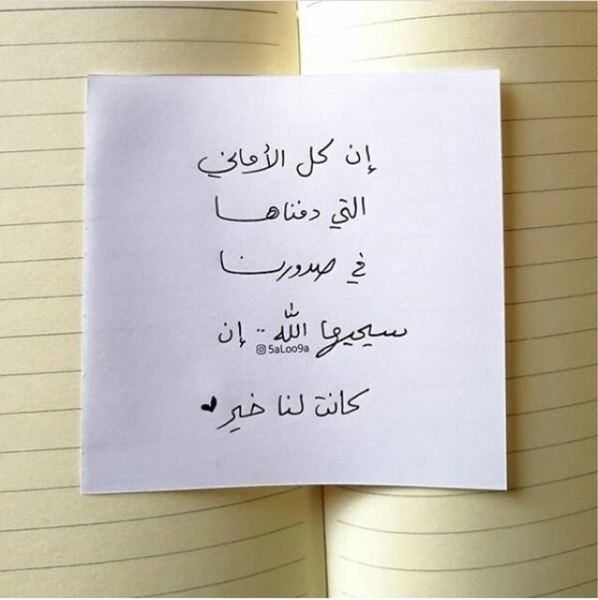 إن كل الأماني
التي دفناها
في صدورنا
سيحييها الله .. إن
5aLoo9a
كانت لنا خير